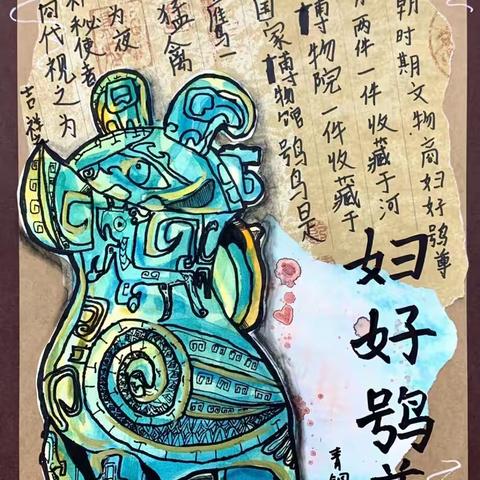 朝时期文物商妇好鸮尊
两件一件收藏于河
博物院一件收藏于
国家博物馆鸮鸟是
猛禽
为夜
秘使者
代视之为
吉祥
妇好鸮
青